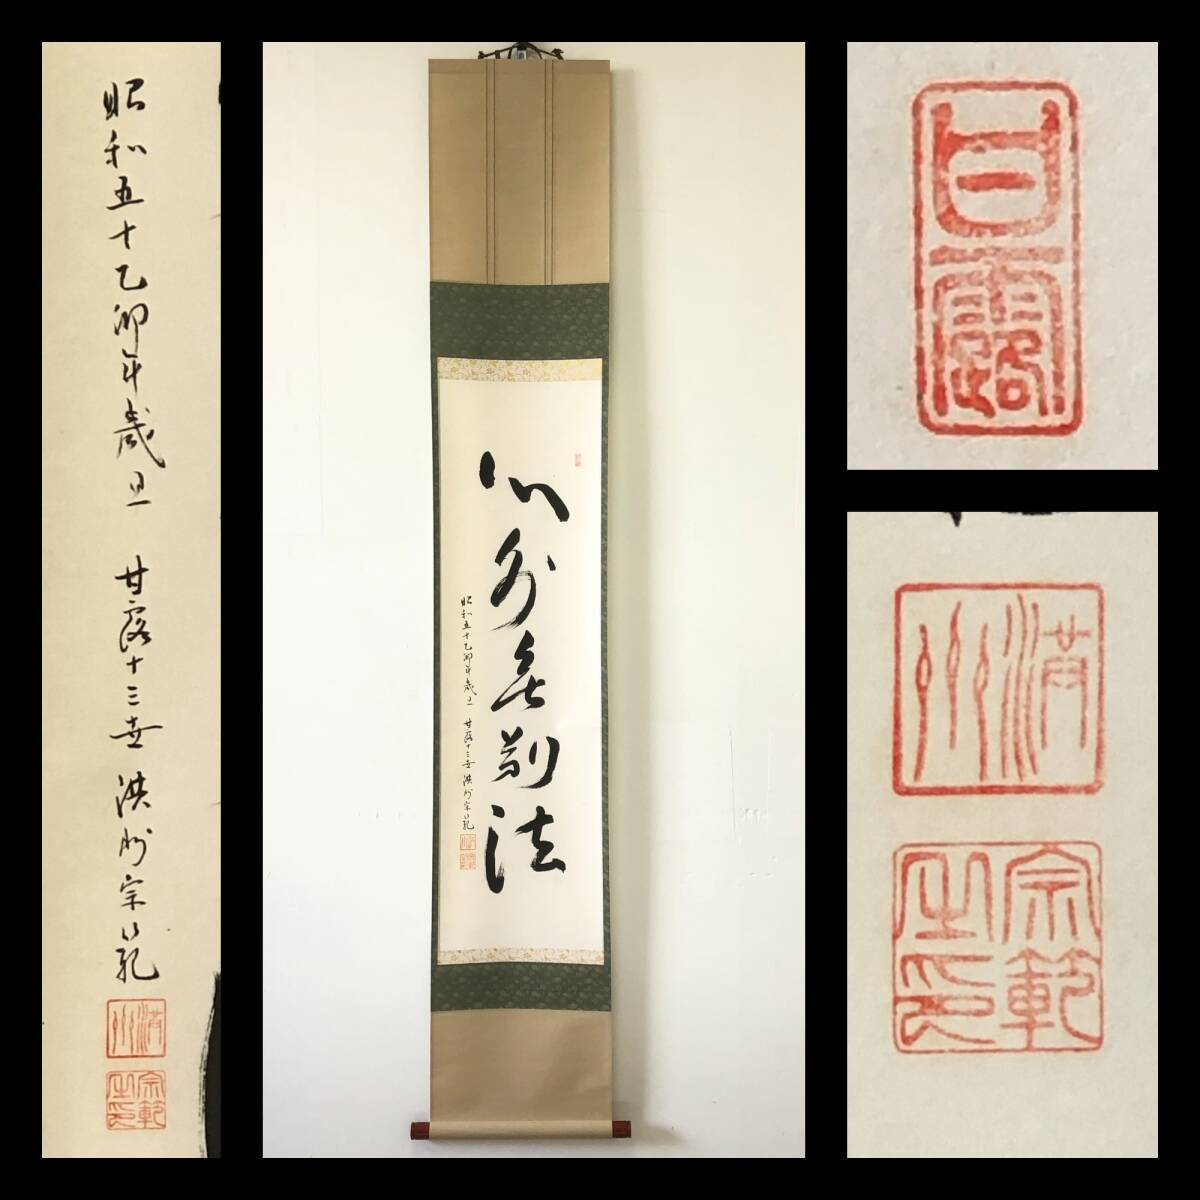 昭和五十乙卯年歳旦 甘露十三世 洪州宗範
洪州
宗範之印
心外無別法
昭和五十乙卯年歳旦 甘露十三世 洪州宗範
洪州
宗範之印
甘露
洪州
宗範之印